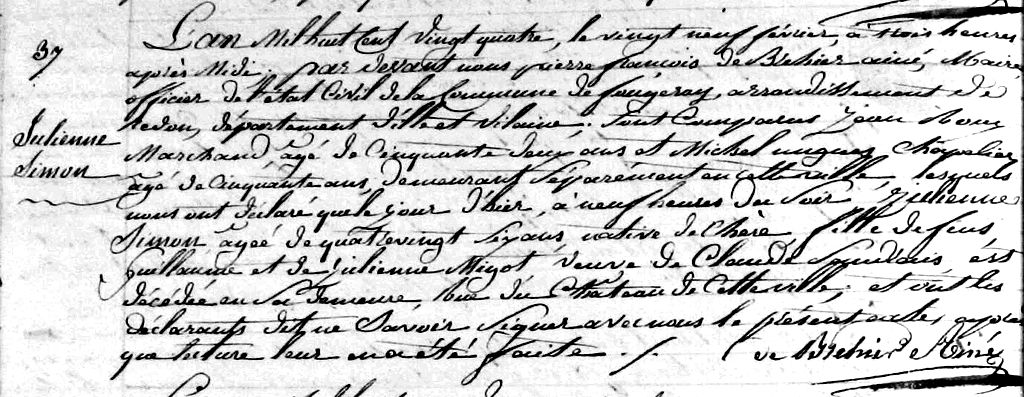 37
Julienne
Simon
L'an Mil huit Cent Vingt quatre, le vingt neuf février, à trois heures
après Midi, par devant nous pierre françois de Bréhier ainé, Maire
officier de l'état Civil de la Commune de fougeray, arrondissement de
redon, département d'ille et vilaine; Sont Comparus Jean
Marchand, âgé de Cinquante deux ans et Michel Chapelier
âgé de Cinquante ans, demeurant Séparément en cette ville, lesquels
nous ont déclaré que le jour d'hier, à neuf heures du Soir, Julienne
Simon âgée de quatrevingt Six ans, native de fille de feus
guillaume et de Julienne Migot, veuve de Claude est
décédée en Sa demeure, rue du Château de Cette ville; et ont les
déclarants dit ne Savoir Signer avec nous le présent acte, après
que lecture leur en a été faite ./.
de Bréhier Ainé